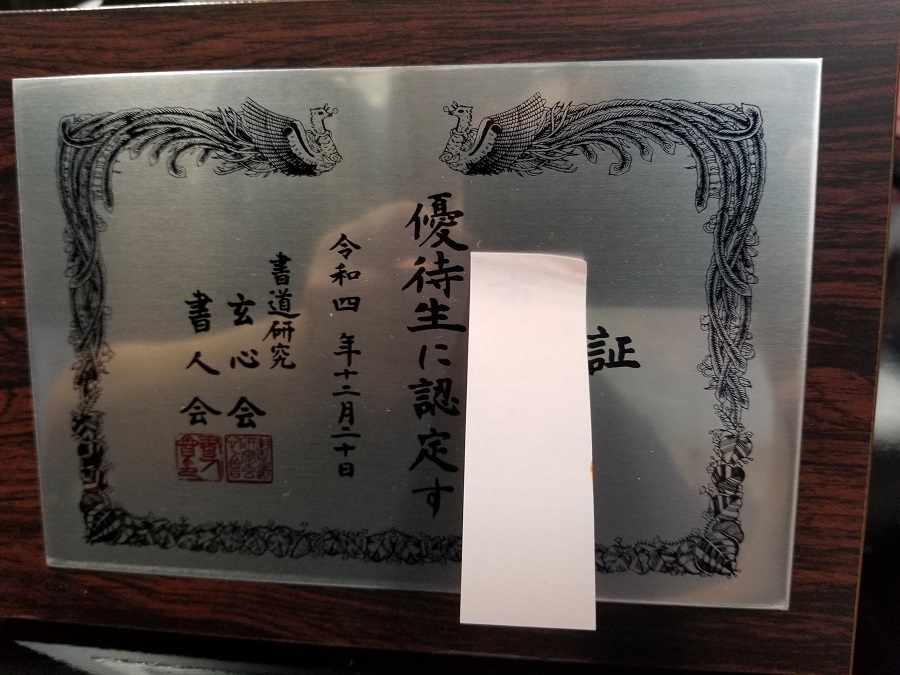 証
優待生に認定す
令和四年十二月二十日
書道研究
玄心会
書人会